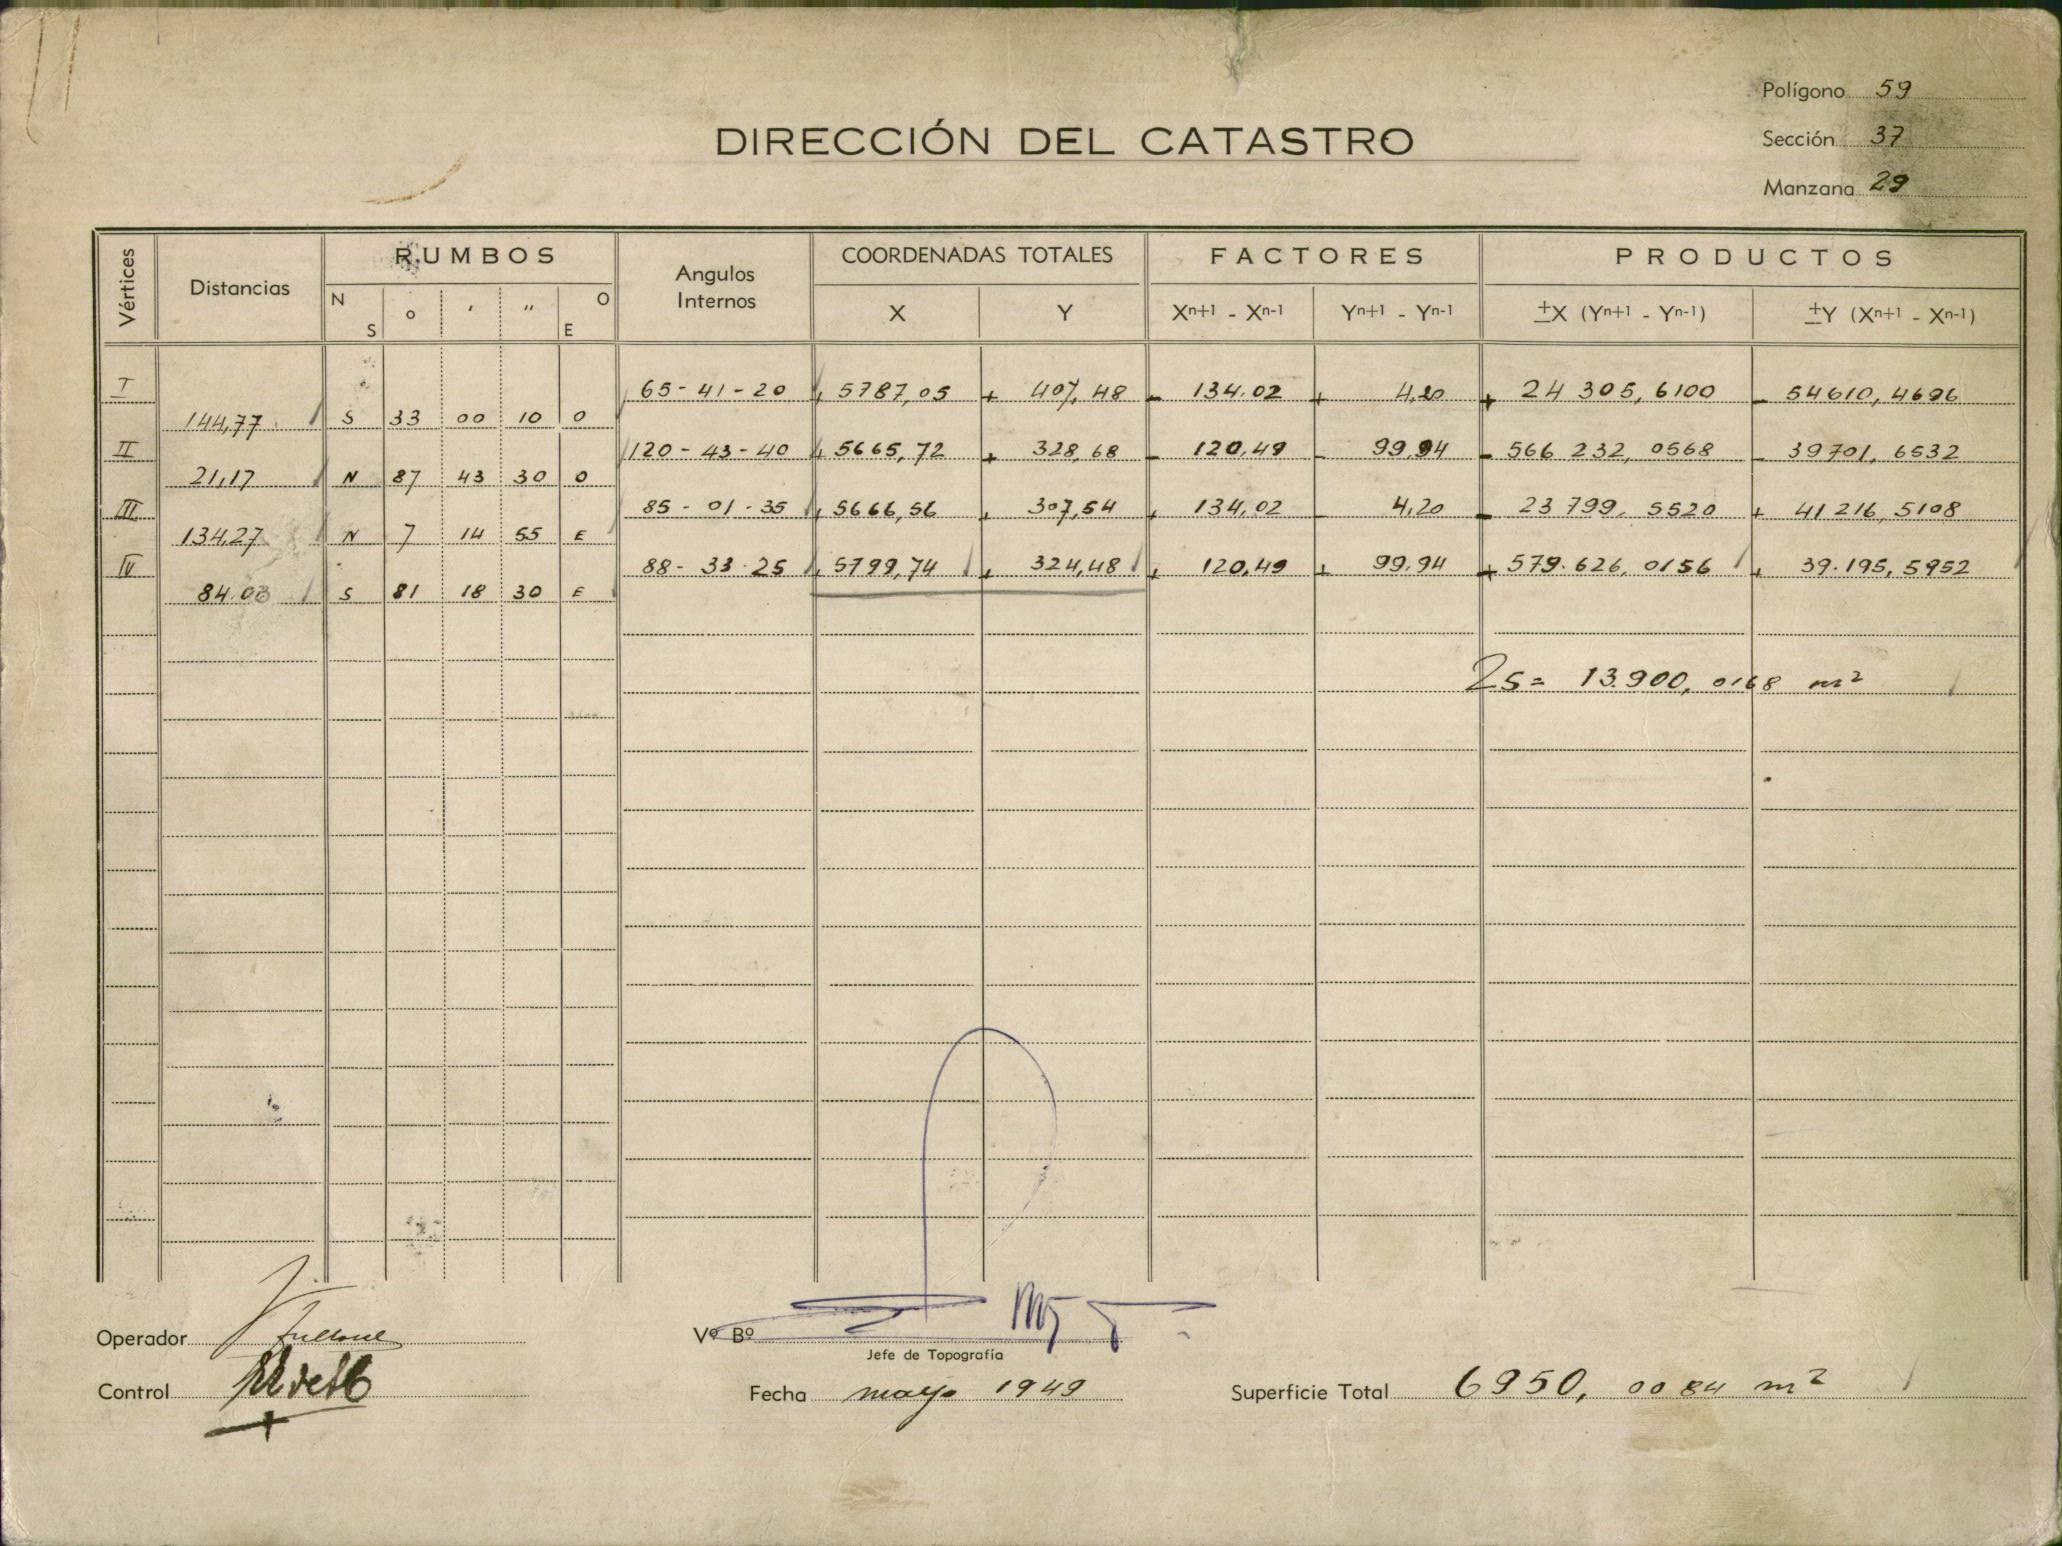 Polígono 59
DIRECCIÓN DEL CATASTRO
Sección 37
Manzana 29
Vértices Distancias RUMBOS Angulos Internos COORDENADAS TOTALES FACTORES PRODUCTOS
N S o ' " O E X Y Xn+1 - Xn-1 Yn+1 - Yn-1 ±X (Yn+1 - Yn-1) ±Y (Xn+1 - Xn-1)
I 65-41-20 + 5787,05 + 407,48 - 134.02 + 4,20 + 24 305,6100 - 54610,4696
144,77 S 33 00 10 O
II 120-43-40 + 5665,72 + 328,68 - 120,49 - 99,94 - 566 232,0568 - 39701,6532
21,17 N 87 43 30 O
III 85-01-35 + 5666,56 + 307,54 + 134,02 - 4,20 - 23 799,5520 + 41 216,5108
134,27 N 7 14 55 E
IV 88-33-25 + 5799,74 + 324,48 + 120,49 + 99.94 + 579.626,0156 + 39.195,5952
84.03 S 81 18 30 E
2S = 13.900,0168 m²
Operador
Vº Bº
Jefe de Topografía
Control
Fecha mayo 1949
Superficie Total 6950,0084 m²